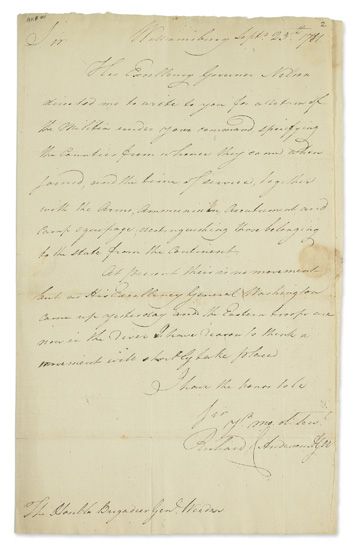 2
Sir Williamsburg Septr 23th 1781
His Excellency Governor Nelson
directed me to write to you for a return of
the Militia under your command specifying
the Counties from whence they came when
joined, and the time of service, together
with the Arms, Ammunition Accutrement and
camp equipage, distinguishing those belonging
to the state from the Continent.
At present there is no movement
but as His Excellency General Washington
came up yesterday and the Eastern troops are
now in the River I have reason to think a
movement will shortly take place
I have the honor to be
Sir
Yr mo. ob Servt
Richard Anderson
The Honble Brigadier Genl Weedon